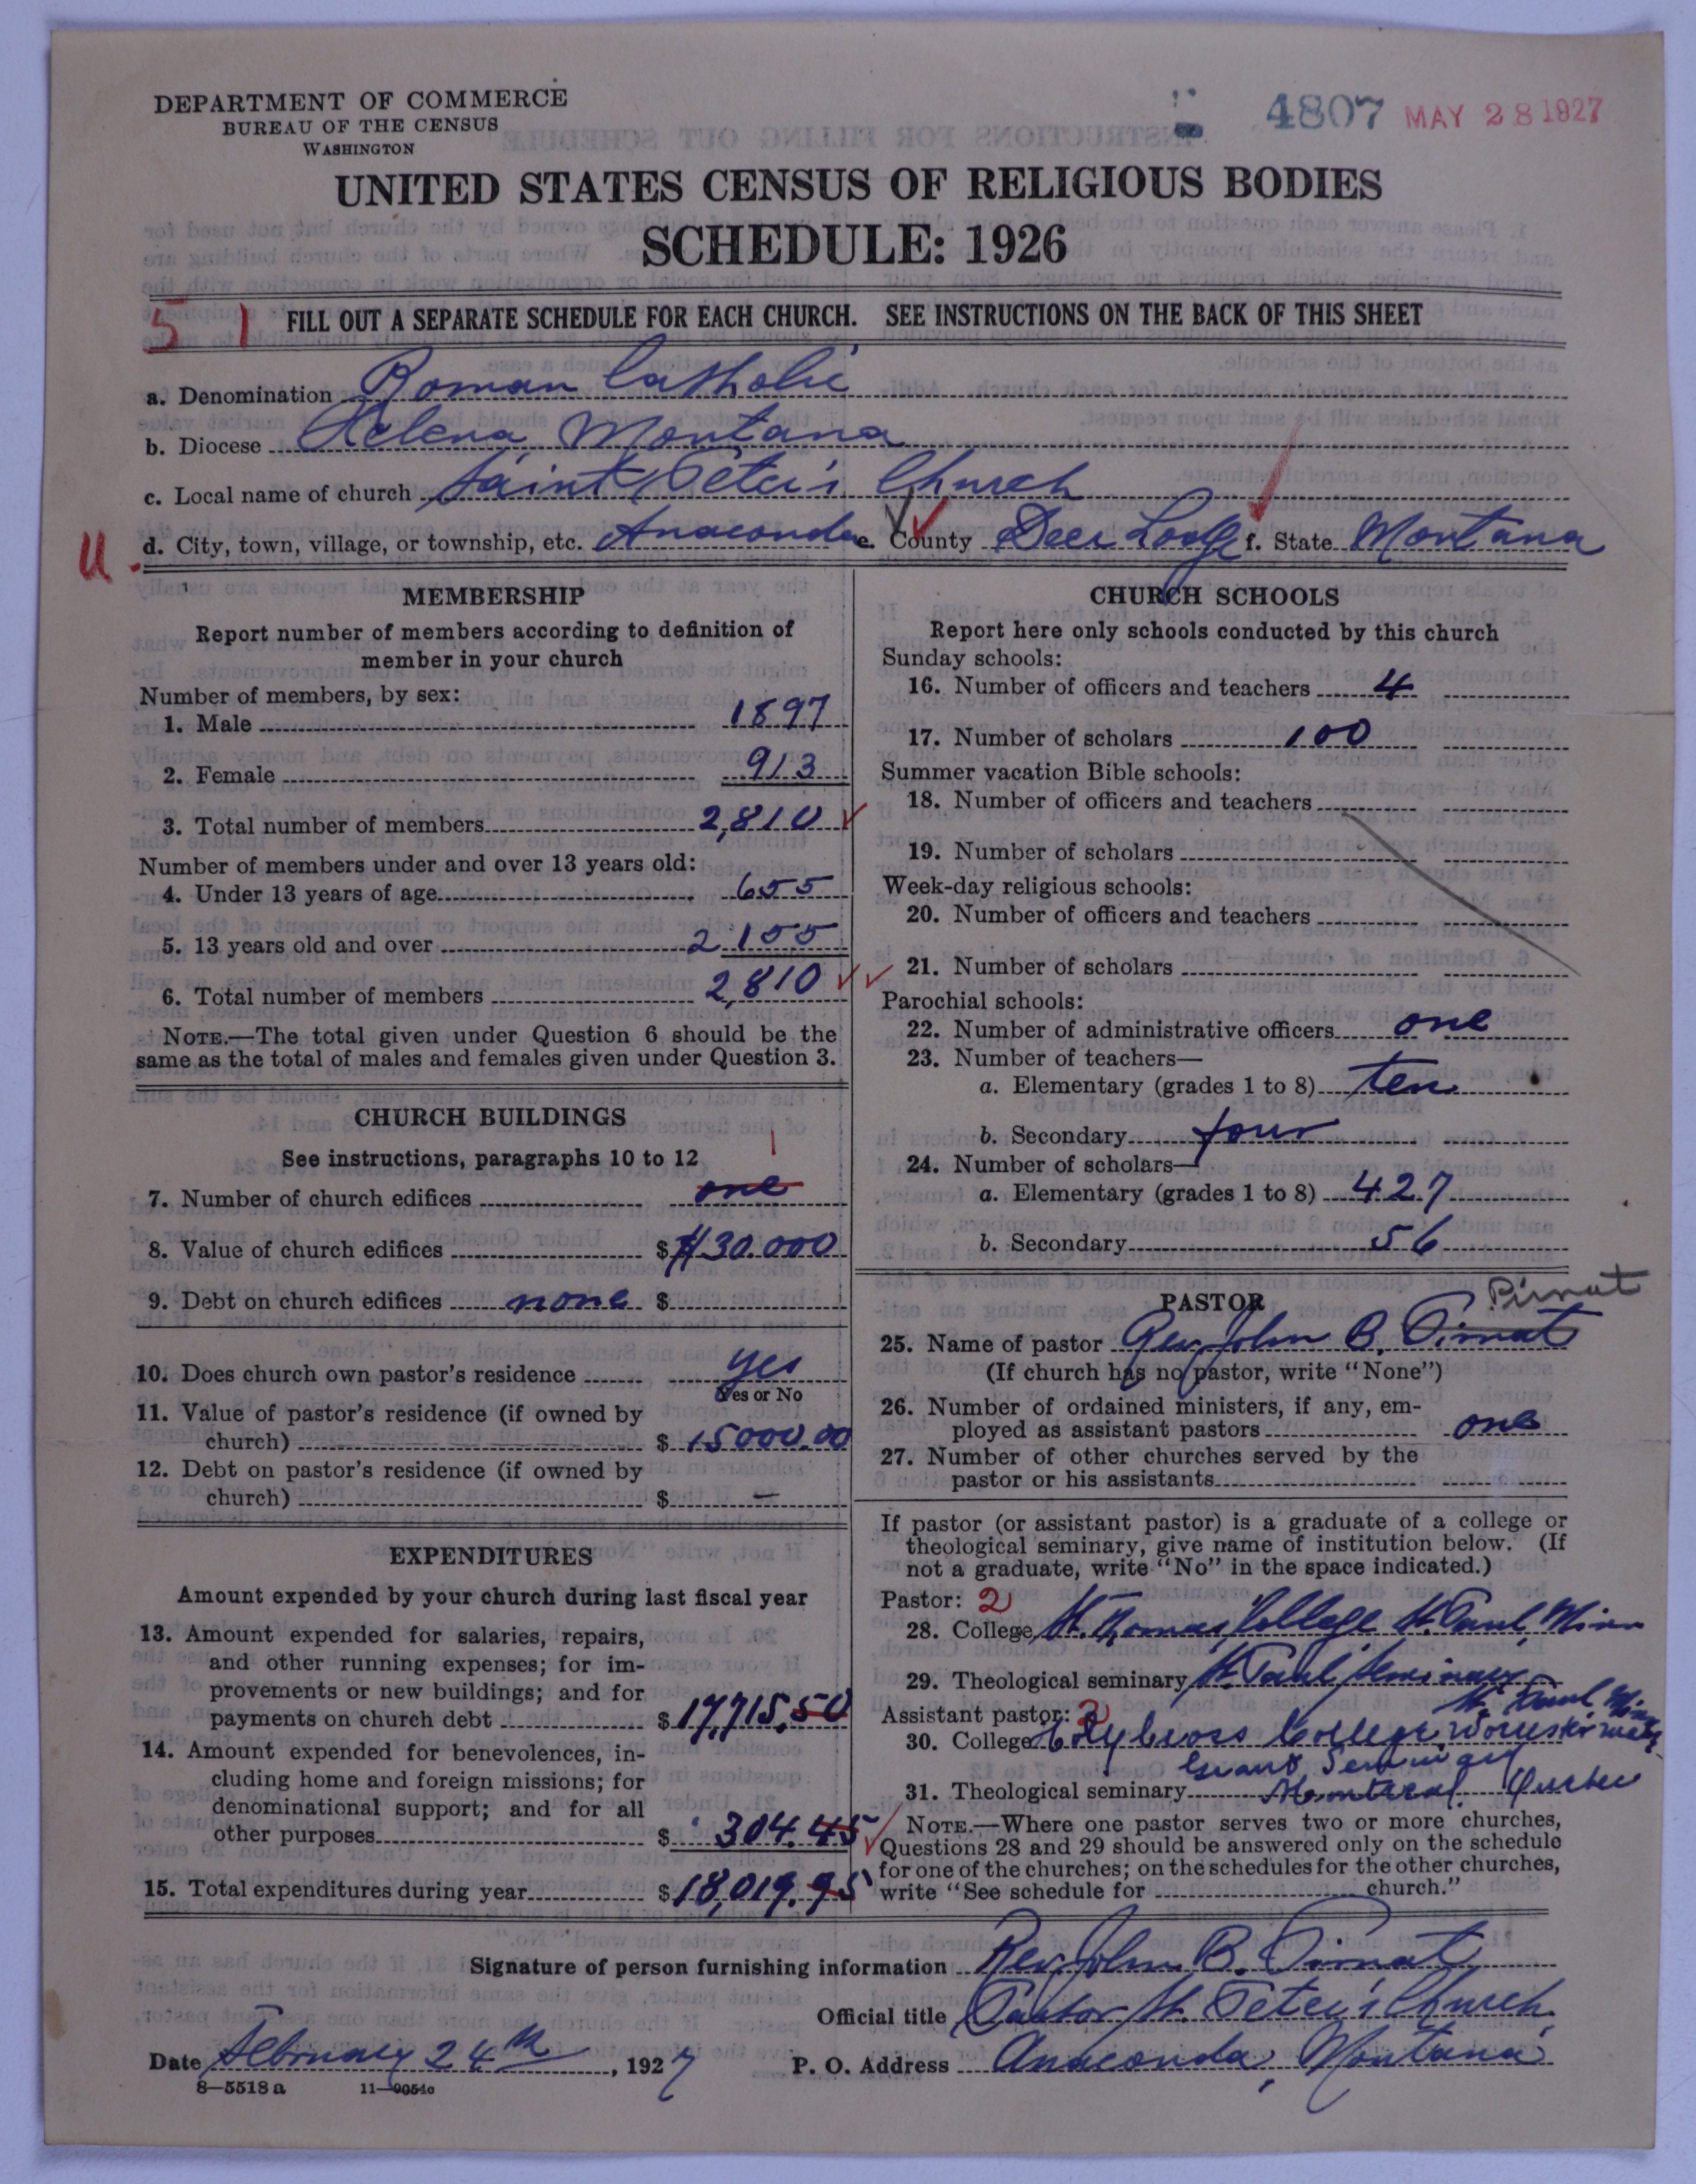 DEPARTMENT OF COMMERCE
BUREAU OF THE CENSUS
WASHINGTON
4807 MAY 28 1927
UNITED STATES CENSUS OF RELIGIOUS BODIES
SCHEDULE: 1926
5 1 FILL OUT A SEPARATE SCHEDULE FOR EACH CHURCH. SEE INSTRUCTIONS ON THE BACK OF THIS SHEET
a. Denomination Roman Catholic
b. Diocese Helena Montana
c. Local name of church Saint Peter's Church
U. d. City, town, village, or township, etc. Anaconda e. County Deer Lodge f. State Montana
MEMBERSHIP
Report number of members according to definition of
member in your church
Number of members, by sex:
1. Male 1897
2. Female 913
3. Total number of members 2,810
Number of members under and over 13 years old:
4. Under 13 years of age 655
5. 13 years old and over 2155
6. Total number of members 2,810
NOTE.—The total given under Question 6 should be the
same as the total of males and females given under Question 3.
CHURCH BUILDINGS
See instructions, paragraphs 10 to 12
1
7. Number of church edifices one
8. Value of church edifices $ 130.000
9. Debt on church edifices none $
10. Does church own pastor's residence yes
Yes or No
11. Value of pastor's residence (if owned by
church) $ 15000.00
12. Debt on pastor's residence (if owned by
church) $ —
EXPENDITURES
Amount expended by your church during last fiscal year
13. Amount expended for salaries, repairs,
and other running expenses; for im-
provements or new buildings; and for
payments on church debt $ 17,715.50
14. Amount expended for benevolences, in-
cluding home and foreign missions; for
denominational support; and for all
other purposes $ 304.45
15. Total expenditures during year $ 18,019.95
CHURCH SCHOOLS
Report here only schools conducted by this church
Sunday schools:
16. Number of officers and teachers 4
17. Number of scholars 100
Summer vacation Bible schools:
18. Number of officers and teachers
19. Number of scholars
Week-day religious schools:
20. Number of officers and teachers
21. Number of scholars
Parochial schools:
22. Number of administrative officers one
23. Number of teachers—
a. Elementary (grades 1 to 8) ten
b. Secondary four
24. Number of scholars—
a. Elementary (grades 1 to 8) 427
b. Secondary 56
PASTOR Pirnat
25. Name of pastor Rev. John B. Pirnat
(If church has no pastor, write "None")
26. Number of ordained ministers, if any, em-
ployed as assistant pastors one
27. Number of other churches served by the
pastor or his assistants
If pastor (or assistant pastor) is a graduate of a college or
theological seminary, give name of institution below. (If
not a graduate, write "No" in the space indicated.)
Pastor: 2
28. College St. Thomas College St. Paul, Minn
29. Theological seminary St. Paul Seminary
St. Paul Minn
Assistant pastor: 2
30. College Holy Cross College, Worcester Mass
Grand Seminary
31. Theological seminary Montreal Quebec
NOTE.—Where one pastor serves two or more churches,
Questions 28 and 29 should be answered only on the schedule
for one of the churches; on the schedules for the other churches,
write "See schedule for church."
Signature of person furnishing information Rev. John B. Pirnat
Official title Pastor St. Peter's Church
Date February 24th, 1927 P. O. Address Anaconda, Montana
8—5518 a 11—9054c